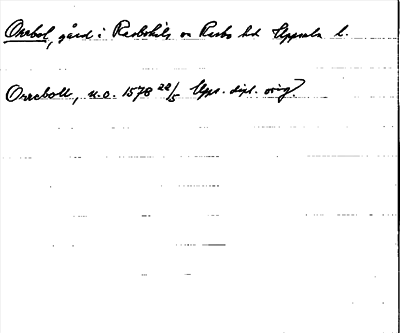 Orrbol, gård i Rasbokils sn Rasbo hd Uppsala l.
Orrebole, u.o. 1578 22/5 Ups. dipl. orig.